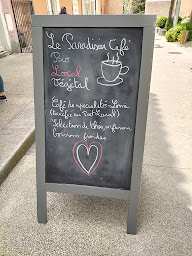 Le Paradisier Café
Bio
Local
Végétal
Café de spécialité - Loma
(torréfié au Pont Laval)
Sélection de thés, infusions,
boissons froides